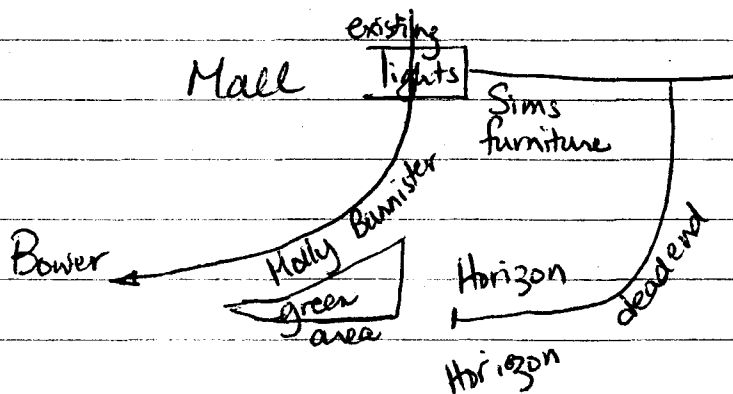 existing
Mall
lights
Sims
furniture
Molly Bannister
Bower
green
area
Horizon
dead end
Horizon